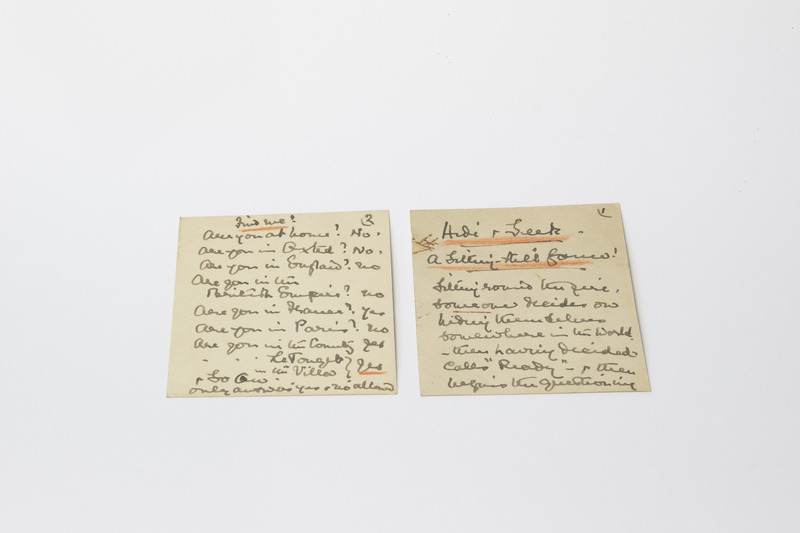 (1
Hide & Seek -
A Sitting Still Game!
Sitting round the fire,
someone decides on
hiding themselves
somewhere in the World.
- then having decided
calls "Ready" - & then
begins the questioning
(2
Find me!
Are you at home? No.
Are you in Oxted? No.
Are you in England? no
Are you in the
British Empire? no
Are you in France? yes
Are you in Paris? no
Are you in the Country yes
" " Le Touquet } yes
" in the Villa
& So On.
only answers yes & no allowed